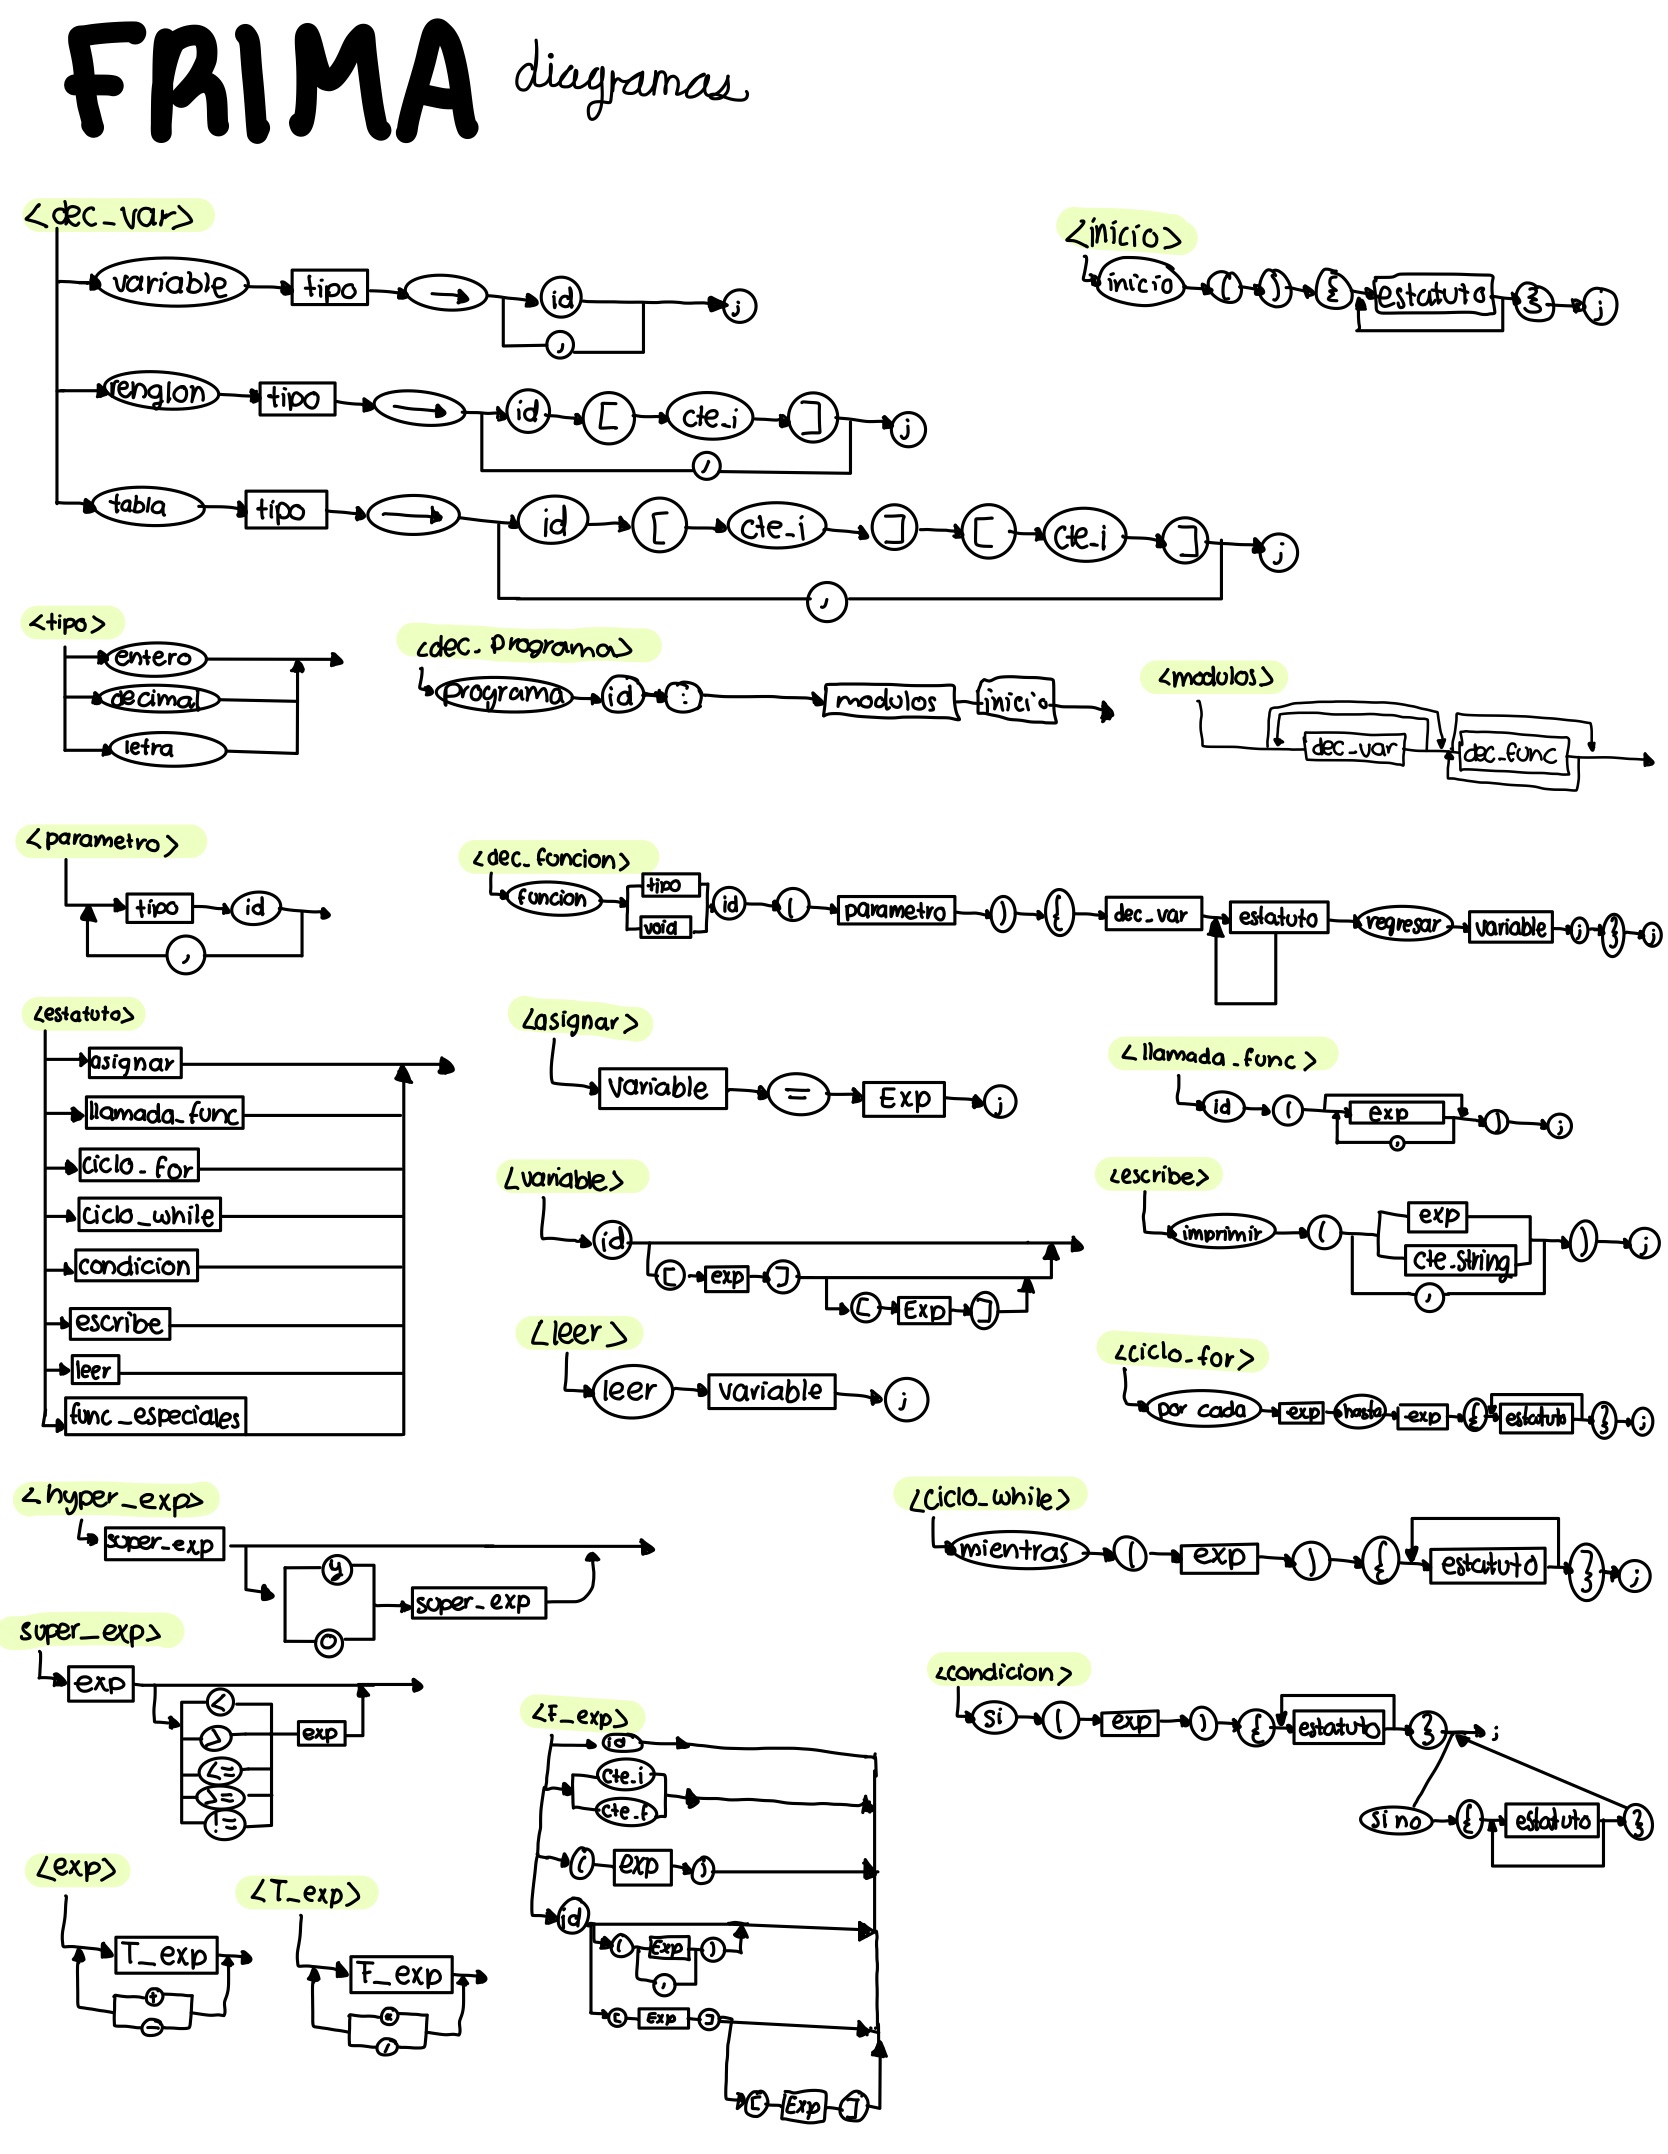 FRIMA diagramas
<dec_var>
variable tipo → id ;
,
renglon tipo → id [ cte_i ] ;
,
tabla tipo → id [ cte_i ] [ cte_i ] ;
,
<inicio>
inicio ( ) { estatuto } ;
<tipo>
entero
decimal
letra
<dec_programa>
programa id : modulos inicio
<modulos>
dec_var dec_func
<parametro>
tipo id
,
<dec_funcion>
funcion tipo void id ( parametro ) { dec_var estatuto regresar variable ; } ;
<estatuto>
asignar
llamada_func
ciclo_for
ciclo_while
condicion
escribe
leer
func_especiales
<asignar>
variable = Exp ;
<llamada_func>
id ( exp ) ;
,
<variable>
id
[ exp ]
[ Exp ]
<escribe>
imprimir ( exp ) ;
cte.string
,
<leer>
leer variable ;
<ciclo_for>
por cada exp hasta exp { estatuto } ;
<hyper_exp>
super_exp
y
super_exp
o
<ciclo_while>
mientras ( exp ) { estatuto } ;
super_exp>
exp
<
> exp
<=
>=
!=
<condicion>
si ( exp ) { estatuto } ;
si no { estatuto }
<F_exp>
id
cte.i
cte.f
( exp )
id
( Exp )
,
[ Exp ]
[ Exp ]
<exp>
T_exp
+
-
<T_exp>
F_exp
*
/